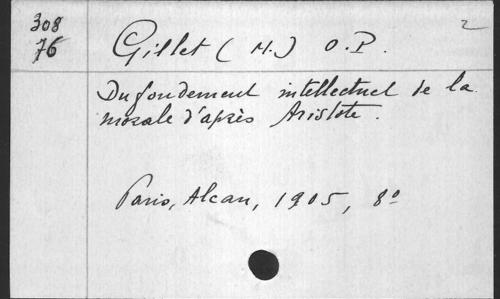 308 2
76 Gillet (M.) O.P.
Du fondement intellectuel de la
morale d'après Aristote.
Paris, Alcan, 1905, 8º